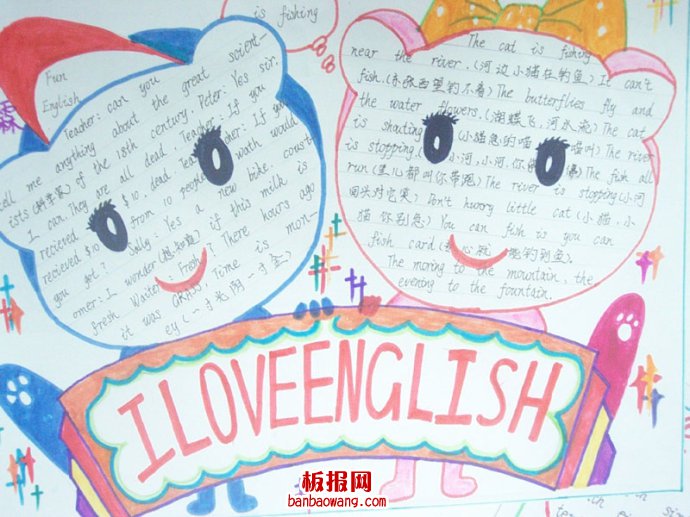 is fishing
Fun
English
Teacher: can you
tell me anything about the great scient-
ists (科学家) of the 18th century. Peter: Yes sir.
I can. They are all dead. Teacher: If you
recieved $10
recieved $10 from 10 people
you get? Sally: Yes a new bike. coust-
omer: I wonder if this milk is
fresh. Waiter: Fresh? There hours ago
it was GRASS. Time is mon-
ey
The cat is fishing
near the river. (河边小猫在钓鱼) It can't
fish. (东张西望钓不着) The butterflies fly and
the water flowers. (蝴蝶飞,河水流) The cat
is shouting (小猫急的喵 喵叫) The river
is stopping. (小河,小河,你 The fish all
run (鱼儿都叫你带跑) The river is stopping (小河
回头对它笑) Don't huorry little cat (小猫,小
猫 你别急) You can fish is you can
fish card
The moring to the mountain, the
evening to the fountain.
ILOVEENGLISH
板报网
banbaowang.com